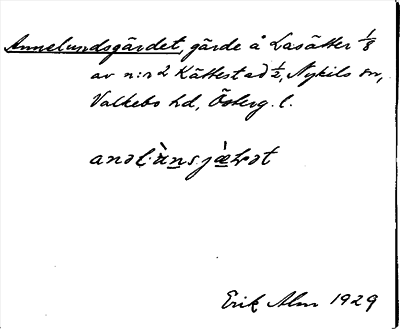 Annelundsgärdet, gärde å Lasätter 1/8
av n:r 2 Kättestad 1/2, Nykils sn,
Valkebo hd, Österg. l.
Erik Alm 1929